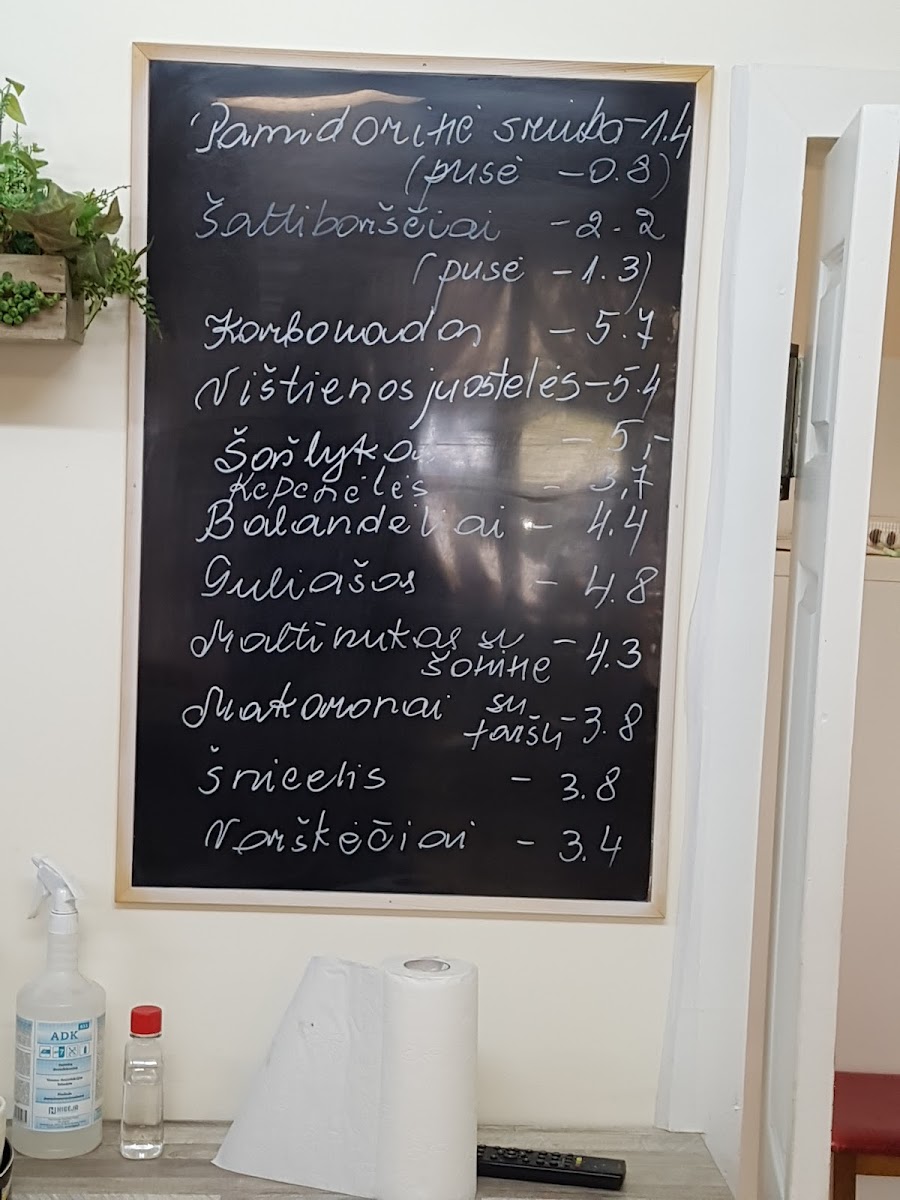 Pamidorinė sriuba - 1.4
(pusė - 0.8)
Šaltibarščiai - 2.2
(pusė - 1.3)
Karbonadas - 5.7
Vištienos juostelės - 5.4
Šašlykas - 5,-
Kepenėlės - 3,7
Balandėliai - 4.4
Guliašas - 4.8
Maltinukas su šonine - 4.3
Makaronai su faršu - 3.8
Šnicelis - 3.8
Varškėčiai - 3.4
ADK